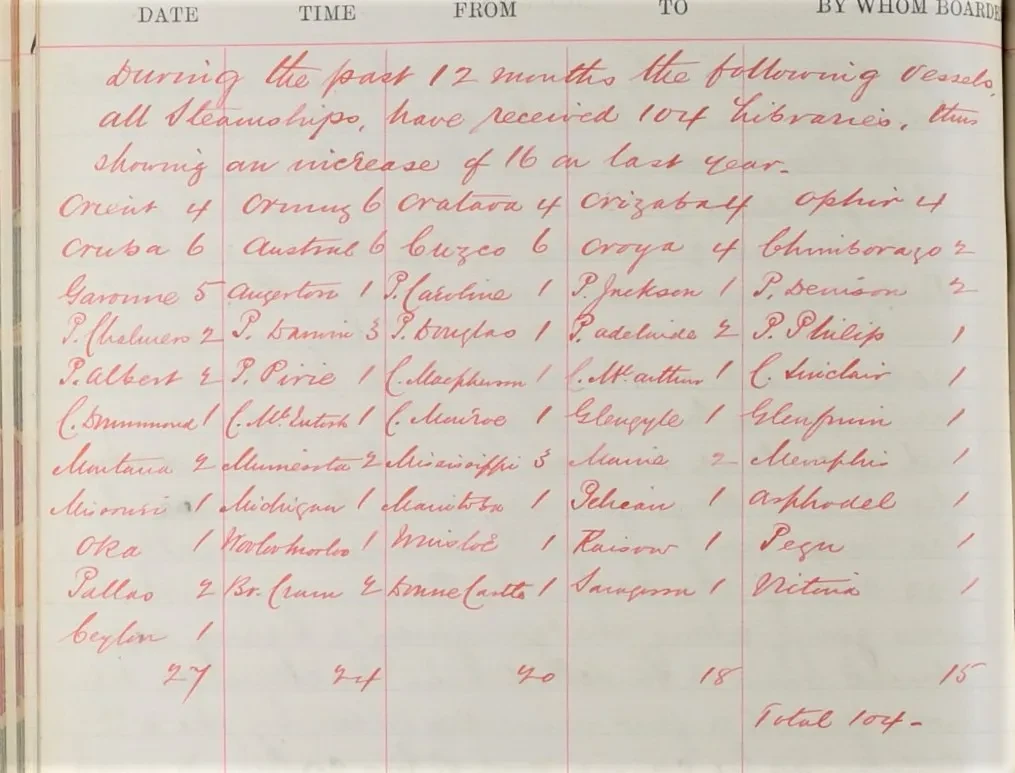 DATE TIME FROM TO BY WHOM BOARDE
During the past 12 months the following vessels,
all Steamships, have received 104 Libraries, thus
showing an increase of 16 on last year.
Orient 4 Ormuz 6 Oratava 4 Orizaba 4 Ophir 4
Oruba 6 Austral 6 Cuzco 6 Oroya 4 Chimborazo 2
Garonne 5 Angerton 1 P. Caroline 1 P. Jackson 1 P. Denison 2
P. Chalmers 2 P. Darwin 3 P. Douglas 1 P. Adelaide 2 P. Philip 1
P. Albert 2 P. Pirie 1 C. Macpherson 1 C. McArthur 1 C. Sinclair 1
C. Drummond 1 C. McIntosh 1 C. Monroe 1 Glengyle 1 Glenfruin 1
Montana 2 Minnesota 2 Mississippi 3 Maine 2 Memphis 1
Missouri 1 Michigan 1 Manitoba 1 Pelican 1 Asphodel 1
Oka 1 Woolloomooloo 1 1 Kaisow 1 Pegu 1
Pallas 2 Br. Crown 2 Doune Castle 1 1 Victoria 1
Ceylon 1
27 24 20 18 15
Total 104-